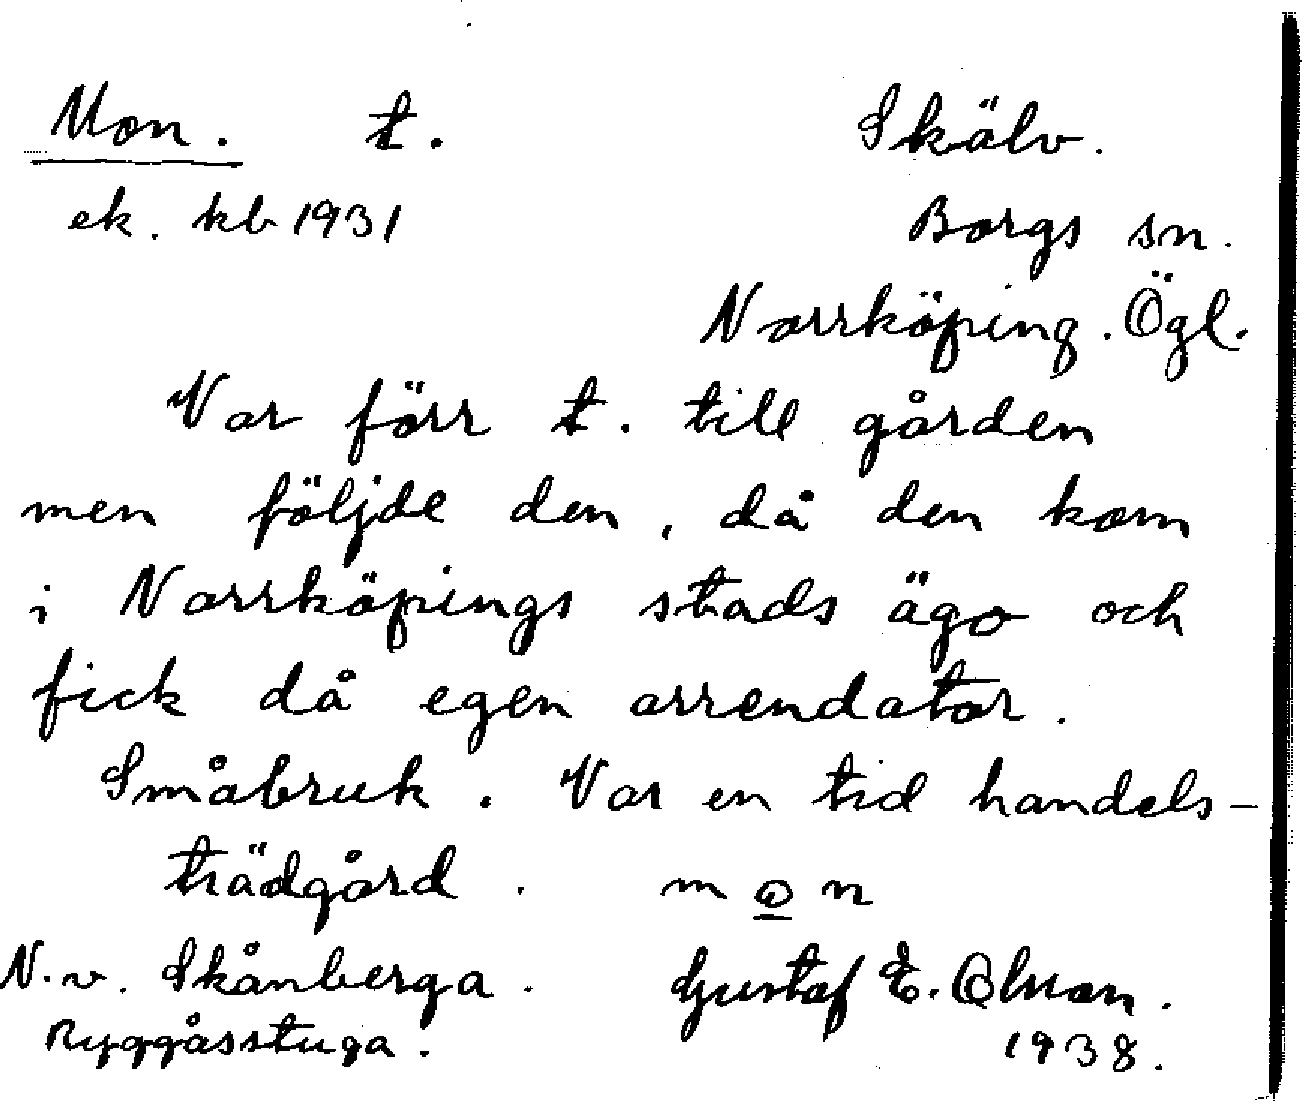 Mon. t. Skälv.
ek. kb 1931 Borgs sn.
Norrköping. Ögl.
Var förr t. till gården
men följde den, då den kom
i Norrköpings stads ägo och
fick då egen arrendator.
Småbruk. Var en tid handels-
trädgård. mon
N.v. Skånberga. Gustaf E. Olsson.
Ryggåsstuga. 1938.